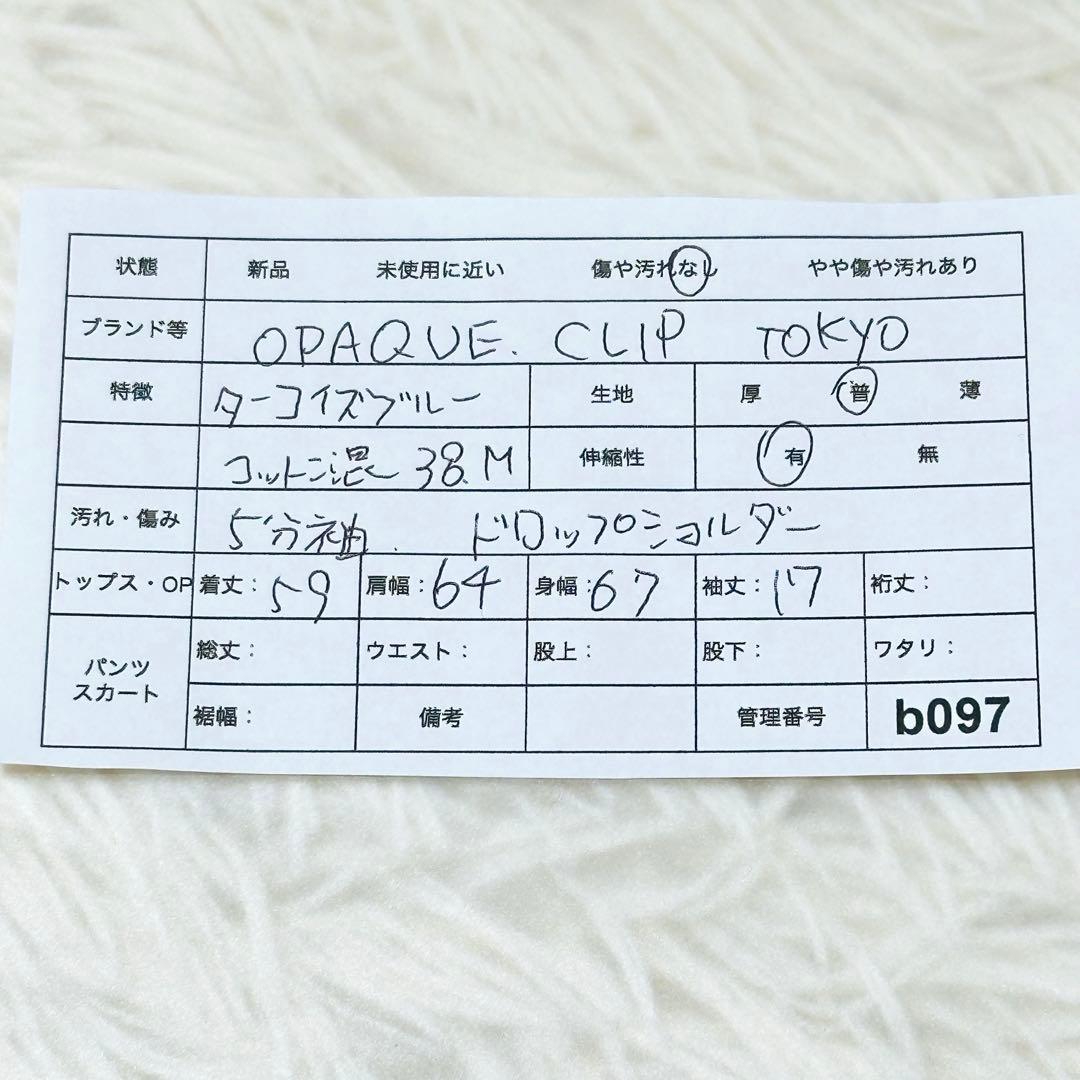 状態 新品 未使用に近い 傷や汚れなし やや傷や汚れあり
ブランド等 OPAQUE. CLIP TOKYO
特徴 ターコイズブルー 生地 厚 普 薄
コットン混 38.M 伸縮性 有 無
汚れ・傷み 5分袖. ドロップショルダー
トップス・OP 着丈: 59 肩幅: 64 身幅: 67 袖丈: 17 裄丈:
パンツ スカート 総丈: ウエスト: 股上: 股下: ワタリ:
裾幅: 備考 管理番号 b097